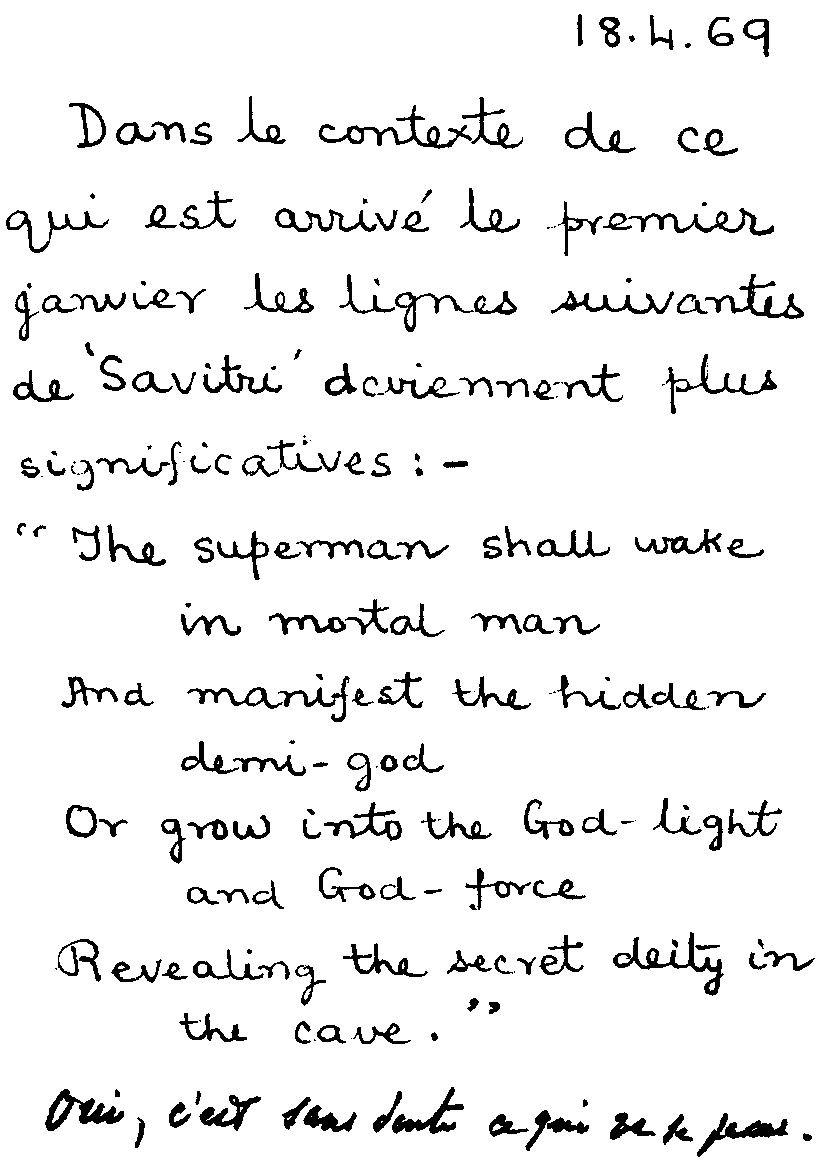 18.4.69
Dans le contexte de ce
qui est arrivé le premier
janvier les lignes suivantes
de 'Savitri' deviennent plus
significatives :-
" The superman shall wake
in mortal man
And manifest the hidden
demi-god
Or grow into the God-light
and God-force
Revealing the secret deity in
the cave."
Oui, c'est sans doute ce qui va se